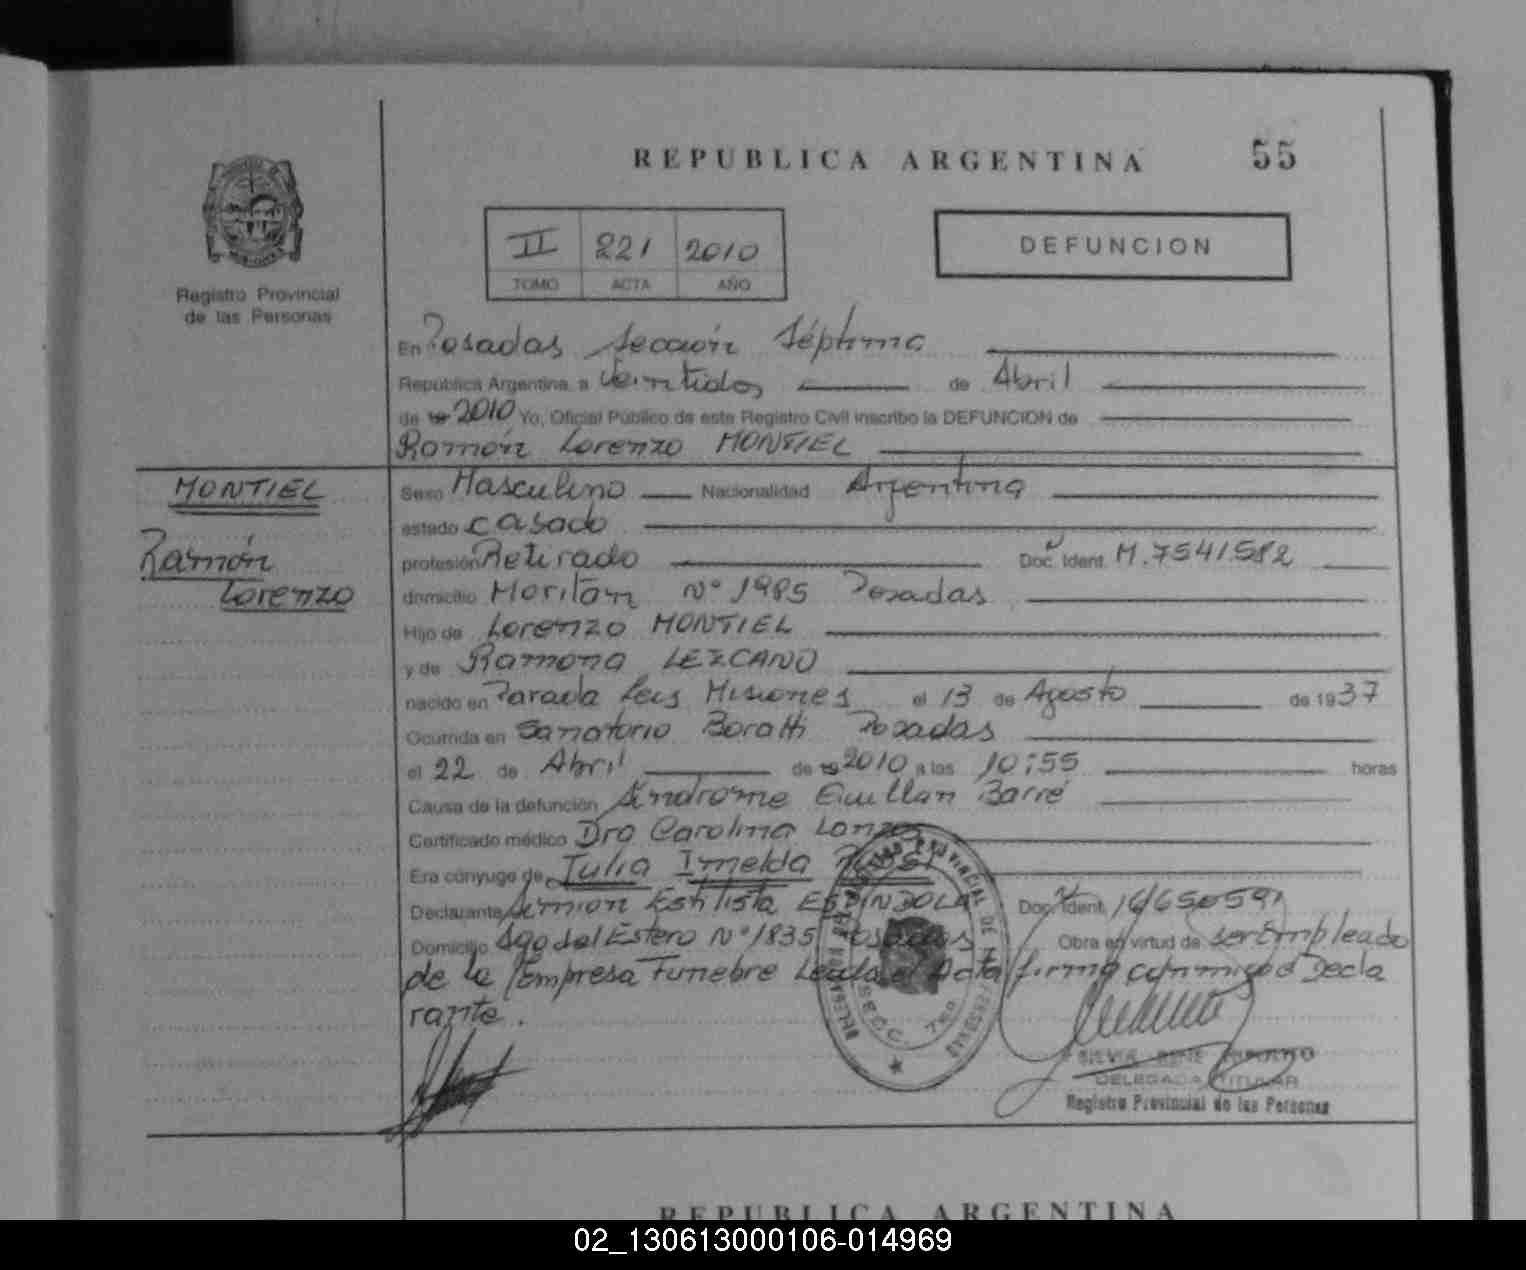 REPUBLICA ARGENTINA 55
II 221 2010
TOMO ACTA AÑO
DEFUNCION
Registro Provincial
de las Personas
En Posadas Sección Séptima
República Argentina, a Veintidos de Abril
de 19 2010 Yo, Oficial Público de este Registro Civil inscribo la DEFUNCION de
Ramón Lorenzo MONTIEL
MONTIEL
Ramón
Lorenzo
Sexo Masculino Nacionalidad Argentina
estado casado
profesión Retirado Doc. Ident. M. 7541582
domicilio Moritán N° 1985 Posadas
Hijo de Lorenzo MONTIEL
y de Ramona LEZCANO
nacido en Parada Leis Misiones el 13 de Agosto de 1937
Ocurrida en Sanatorio Boratti Posadas
el 22 de Abril de 19 2010 a las 10:55 horas
Causa de la defunción Síndrome Guillan Barré
Certificado médico Dra Carolina
Era cónyuge de Julia Imelda
Declarante Estilista ESPINDOLA Doc. Ident. 16650591
Domicilio Sgo del Estero N° 1835 Posadas Obra en virtud de ser Empleado
de la Empresa Funebre Leida el Acta firma conmigo el Decla
rante.
SILVIA RENE
DELEGADA TITULAR
Registro Provincial de las Personas
REPUBLICA ARGENTINA
02_130613000106-014969